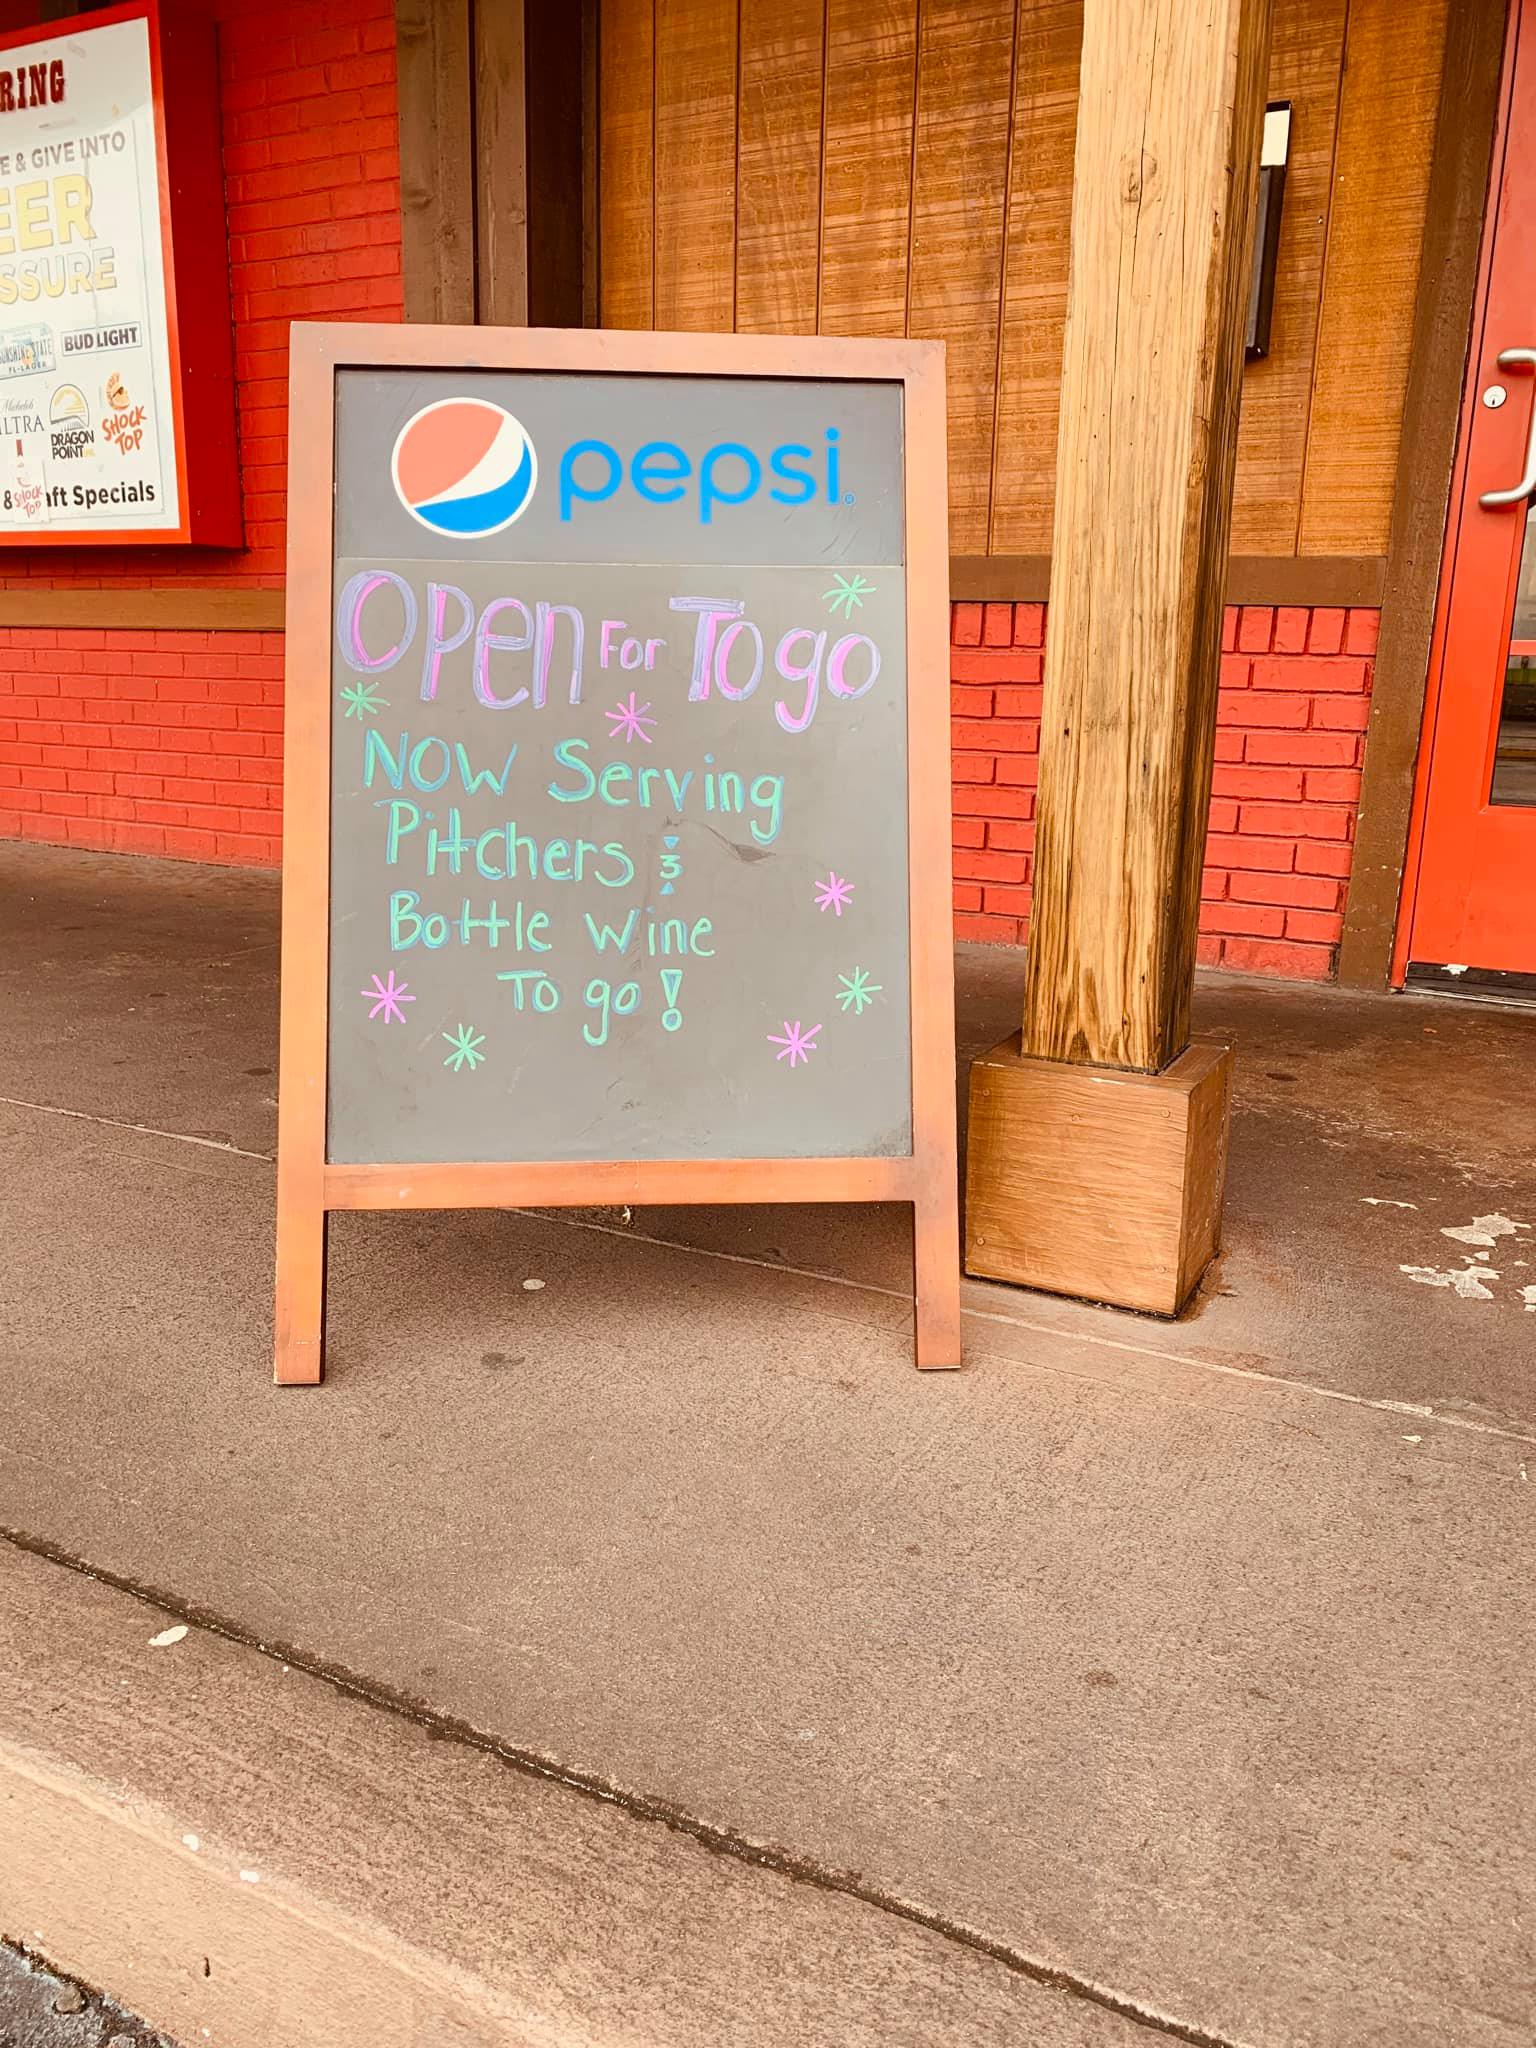 RING
E & GIVE INTO
EER
SSURE
SUNSHINE STATE
FL-LAGER
BUD LIGHT
Michelob
ULTRA
DRAGON
POINT
SHOCK
TOP
& SHOCK TOP aft Specials
pepsi®
Open For To go
NOW Serving
Pitchers &
Bottle Wine
To go!